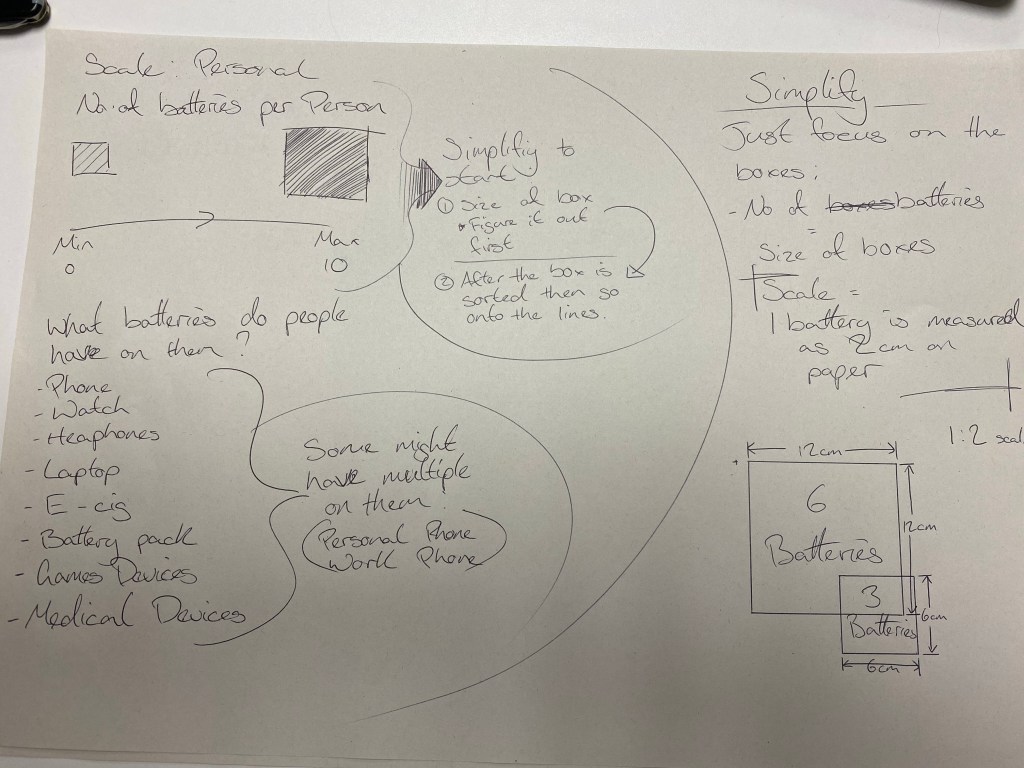 Scale: Personal
No. of batteries per Person
Min
0
Max
10
Simplifiy to
start
① Size of box
• Figure it out
first
② After the box is
sorted then so
onto the lines.
What batteries do people
have on them?
- Phone
- Watch
- Heaphones
- Laptop
- E-cig
- Battery pack
- Games Devices
- Medical Devices
Some might
have multiple
on them!
Personal Phone
Work Phone
Simplify
Just focus on the
boxes:
- No of boxes batteries
=
Size of boxes
Scale =
1 battery is measured
as 2cm on
paper
1:2 scal
12cm
6
Batteries
12cm
3
Batteries
6cm
6cm